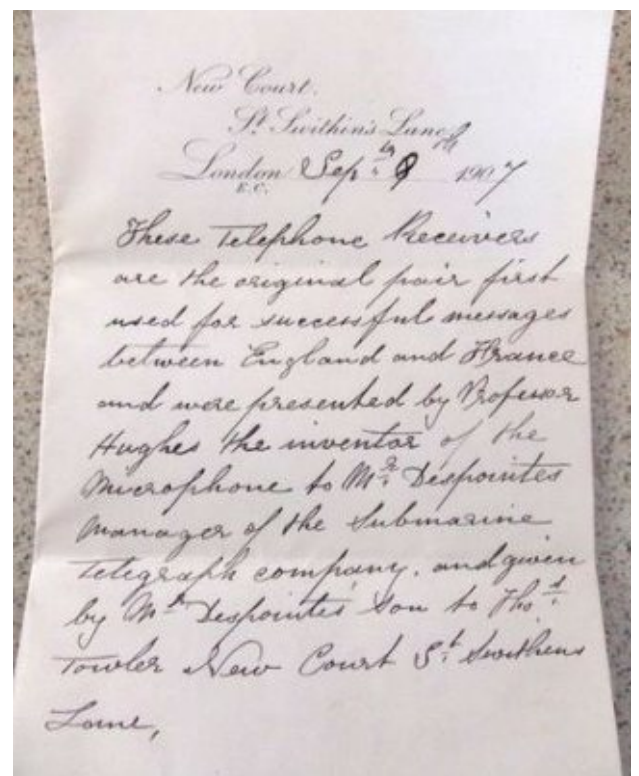 New Court.
St Swithin's Lane
London Sepr 9th 1907
E.C.
These Telephone Receivers
are the original pair first
used for successful messages
between England and France
and were presented by Professor
Hughes the inventor of the
Microphone to Mr Despointes
Manager of the Submarine
Telegraph company. and given
by Mr Despointes son to Thos
Towler New Court St Swithens
Lane,